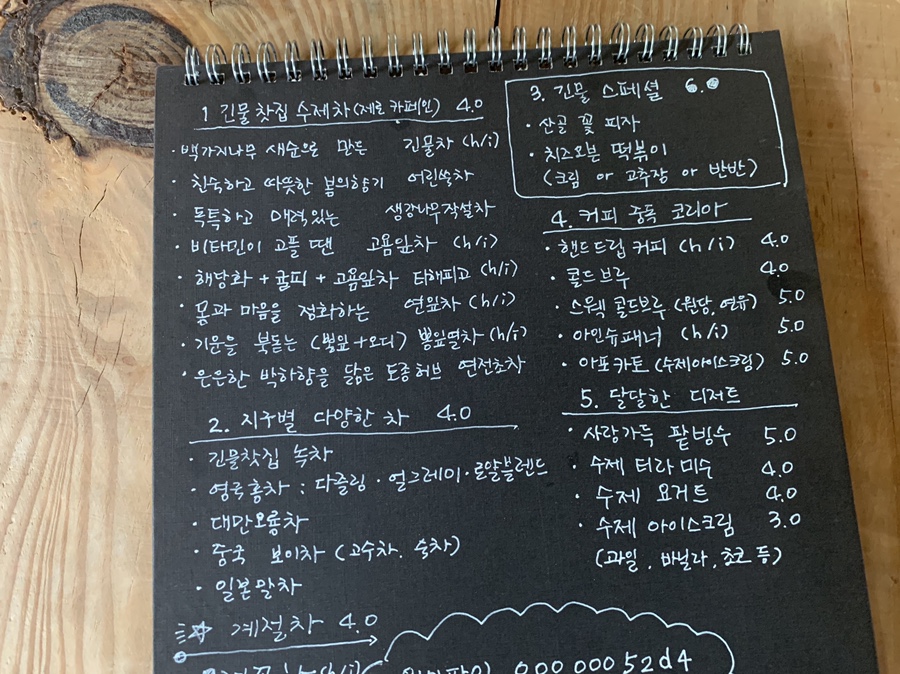 1 긴물찻집 수제차(제로 카페인) 4.0
· 백가지나무 새순으로 만든 긴물차 (h/i)
· 친숙하고 따뜻한 봄의향기 어린쑥차
· 독특하고 매력있는 생강나무작설차
· 비타민이 고플 땐 고욤잎차 (h/i)
· 해당화 + 귤피 + 고욤잎차 티해피고 (h/i)
· 몸과 마음을 정화하는 연잎차 (h/i)
· 기운을 북돋는 (뽕잎+오디) 뽕잎열차 (h/i)
· 은은한 박하향을 닮은 토종허브 연전초차
2. 지구별 다양한 차 4.0
· 긴물찻집 녹차
· 영국홍차 : 다즐링 · 얼그레이 · 로얄블렌드
· 대만오룡차
· 중국 보이차 (고수차. 숙차)
· 일본말차
계절차 4.0
3. 긴물 스페셜 6.0
· 산골 꽃 피자
· 치즈오븐 떡볶이
(크림 or 고추장 or 반반)
4. 커피 중독 코리아
· 핸드드립 커피 (h/i) 4.0
· 콜드브루 4.0
· 스위첵 콜드브루 (원당, 연유) 5.0
· 아인슈패너 (h/i) 5.0
· 아포카토 (수제아이스크림) 5.0
5. 달달한 디저트
· 사랑가득 팥빙수 5.0
· 수제 티라미수 4.0
· 수제 요거트 4.0
· 수제 아이스크림 3.0
(과일, 바닐라, 초코 등)
00000052d4